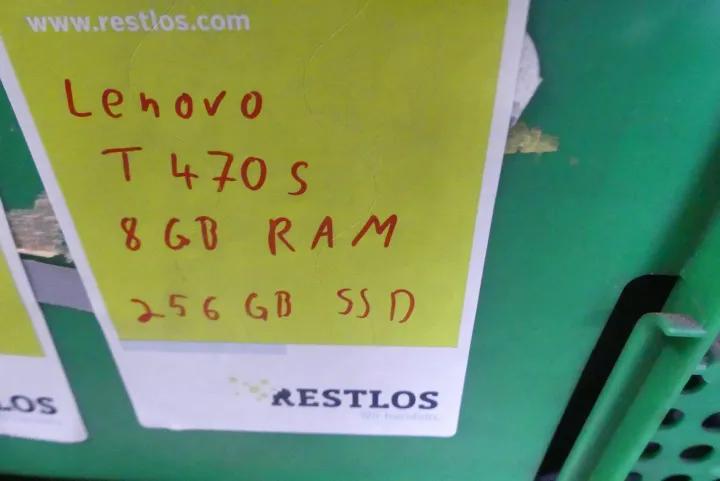 www.restlos.com
Lenovo
T470s
8GB RAM
256 GB SSD
RESTLOS
Wir handeln.
LOS